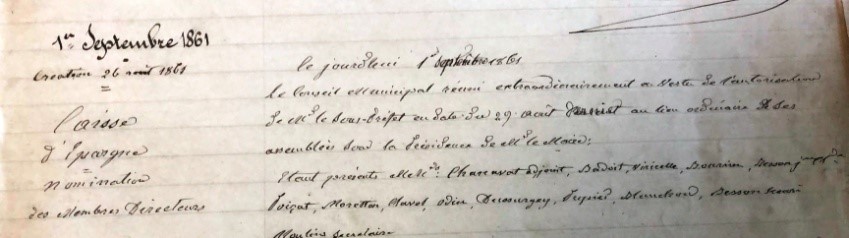 1er Septembre 1861
Création 26 août 1861
Caisse
d'Epargne
nomination
des Membres Directeurs
Le jourd'hui 1er septembre 1861
Le Conseil Municipal réuni extraordinairement en Vertu de l'autorisation
de Mr le Sous-Préfet en date du 29 août dernier au lieu ordinaire de ses
assemblées sous la Présidence de Mr le Maire;
Etant présents MM. Chaccavat adjoint, Badoit, Viricelle, Bourrin, Besson
Poizat, Moretton, Clavel, Odin, Dussurgey, Besson Henri
Moulin Secrétaire